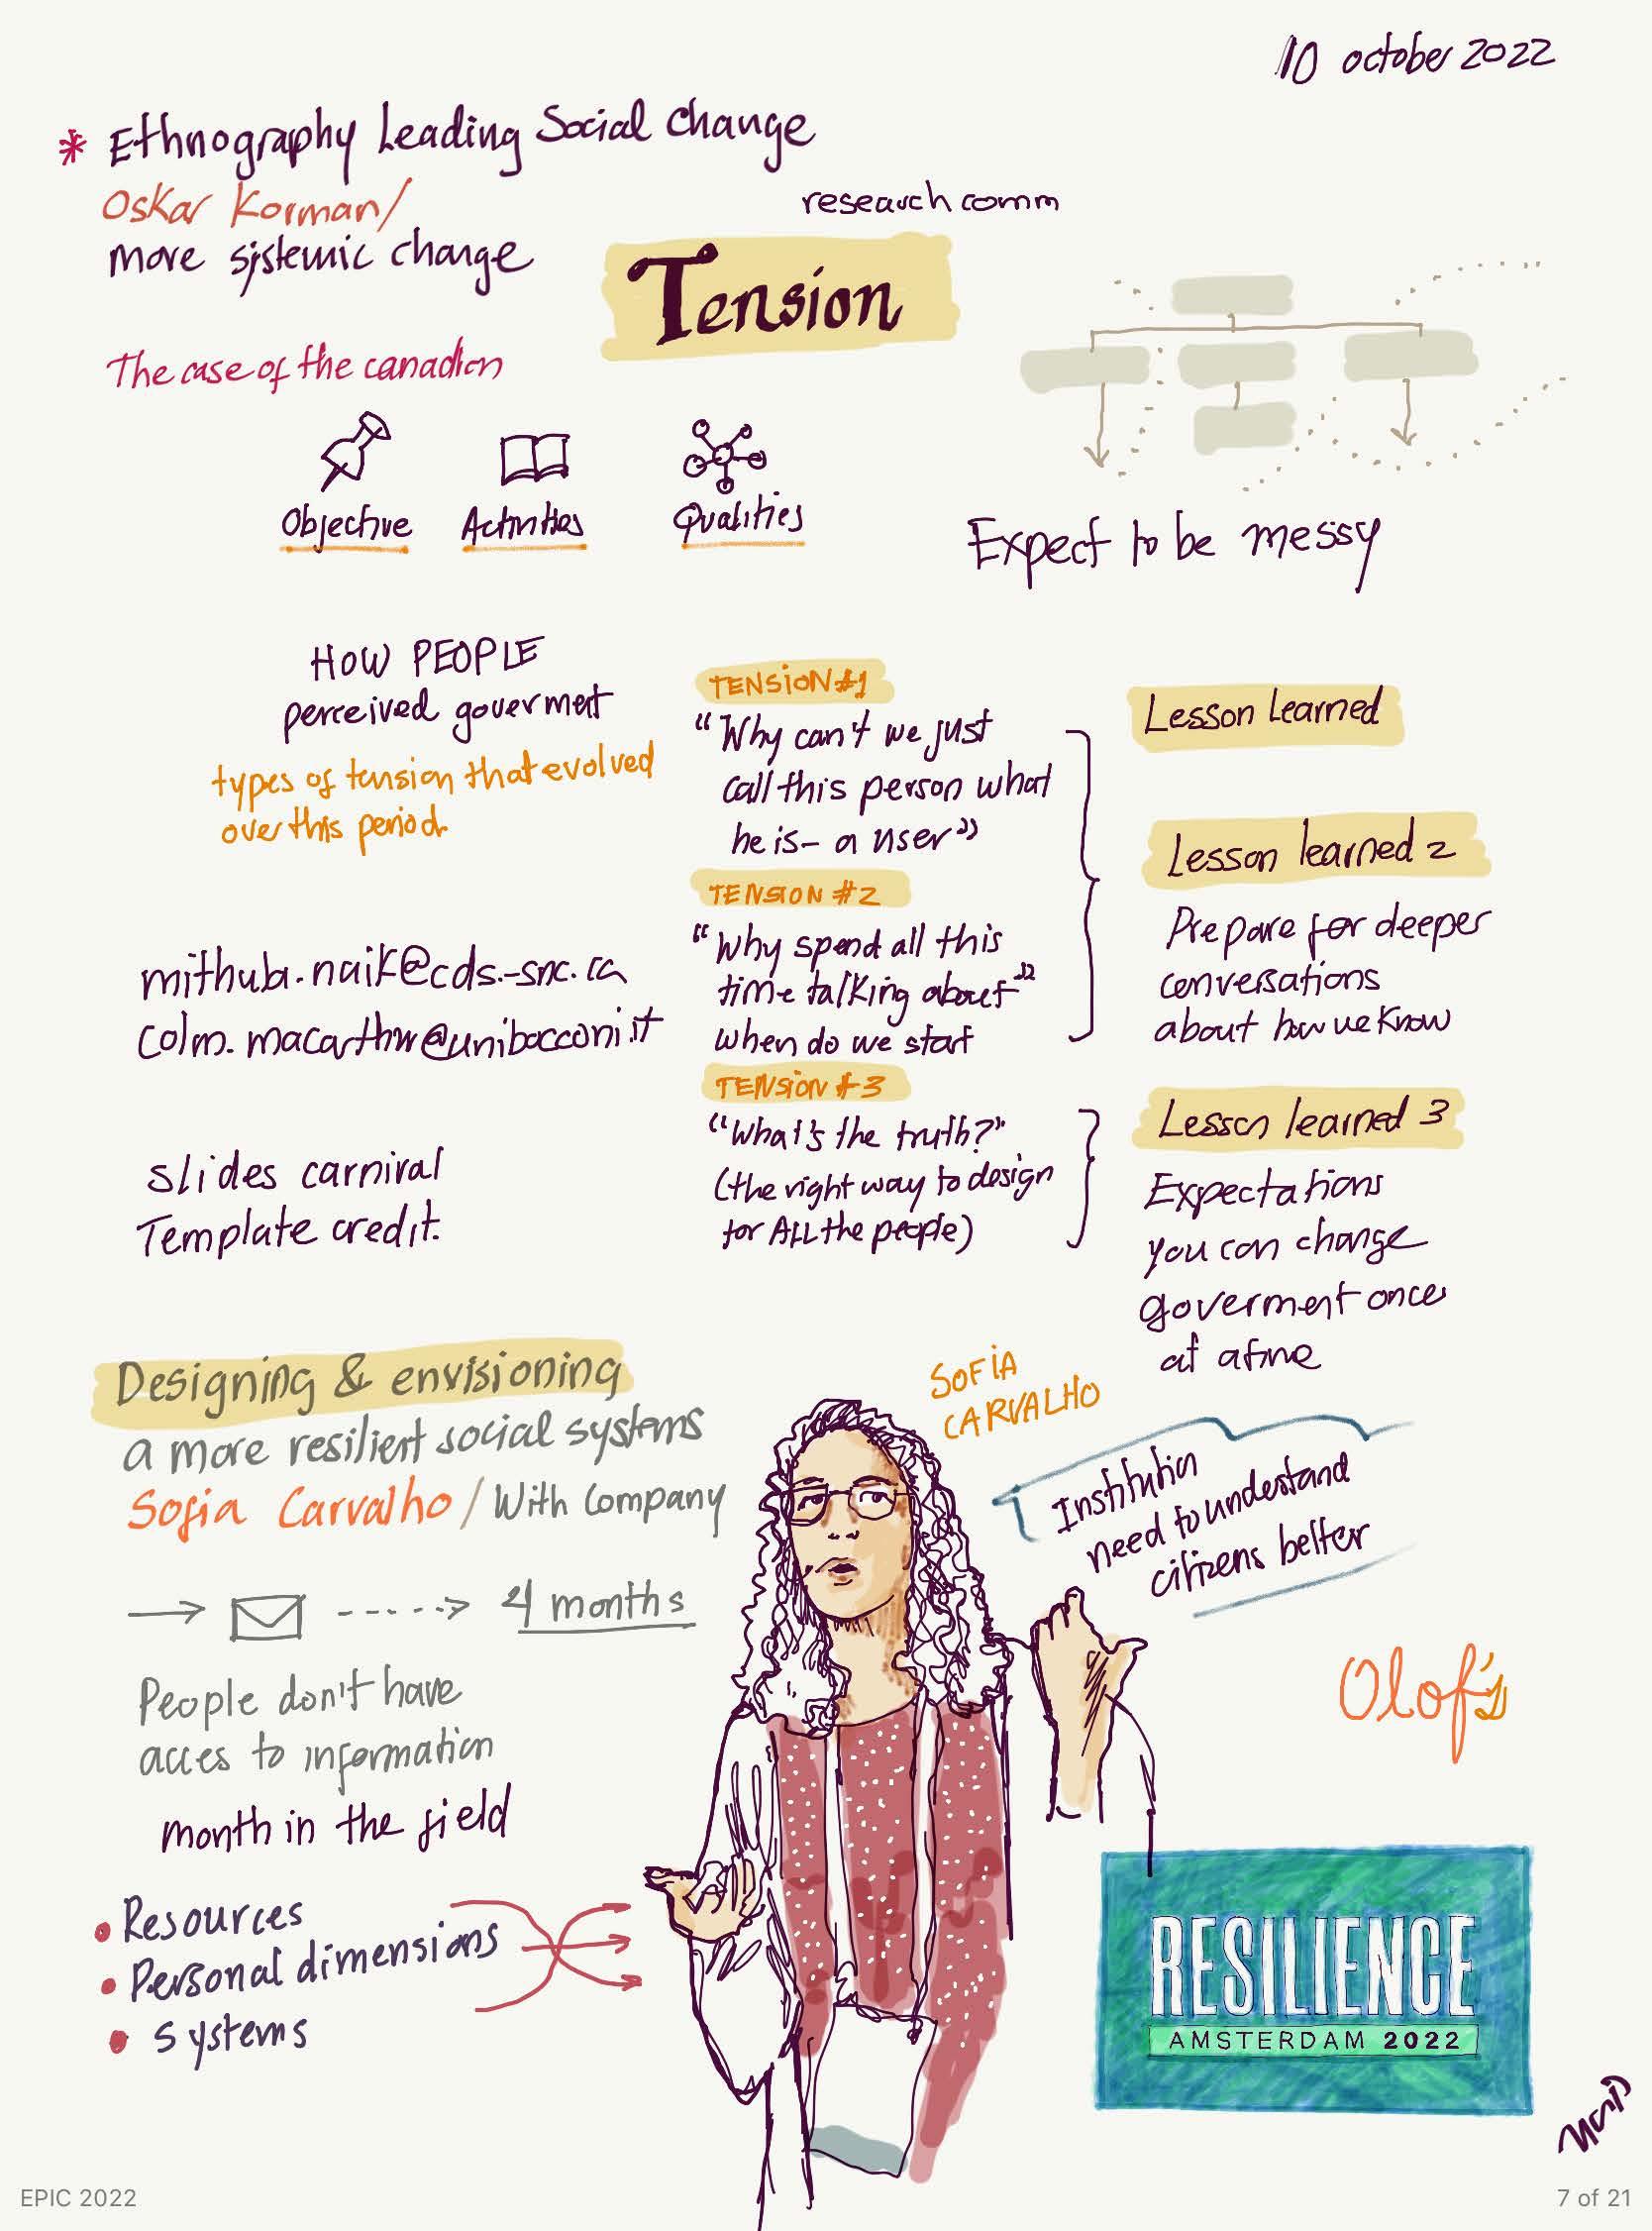 10 october 2022
* Ethnography Leading Social change
Oskar Korman/
more sistemic change
research comm
Tension
The case of the canadian
Objective
Activities
Qualities
Expect to be messy
HOW PEOPLE
perceived goverment
types of tension that evolved
over this period.
mithula.naik@cds.-snc.ca
Colm.macarthur@unibocconi.it
slides carnival
Template credit.
TENSION #1
"Why can't we just
call this person what
he is - a user"
TENSION #2
"Why spend all this
time talking about"
when do we start
TENSION #3
"What's the truth?"
(the right way to design
for ALL the people)
Lesson Learned
Lesson learned 2
Prepare for deeper
conversations
about how we know
Lesson learned 3
Expectations
you can change
goverment once
at a time
Designing & envisioning
a more resilient social systems
Sofia Carvalho / With Company
4 months
People don't have
acces to information
month in the field
• Resources
• Personal dimensions
• systems
SOFIA
CARVALHO
Institution
need to understand
citizens better
Olof's
RESILIENCE
AMSTERDAM 2022
EPIC 2022
7 of 21